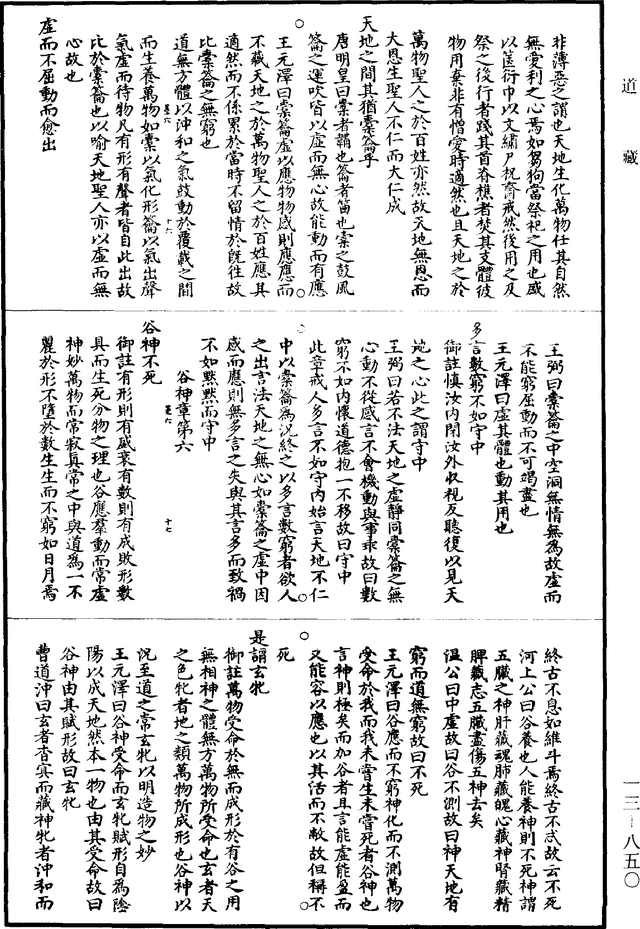 道藏
非薄惡之謂也天地生化萬物任其自然
無愛利之心焉如芻狗當祭祀之用也盛
以篋衍巾以文繡尸祝齋戒然後用之及
祭之後行者踐其首脊樵者焚其支體彼
物用棄非有憎愛時適然也且天地之於
萬物聖人之於百姓亦然故天地無恩而
大恩生聖人不仁而大仁成
天地之間其猶橐籥乎
唐明皇曰橐者鞴也籥者笛也橐之鼓風
籥之運吹皆以虛而無心故能動而有應
王元澤曰橐籥虛以應物物感則應應而
不藏天地之於萬物聖人之於百姓應其
適然而不係累於當時不留情於既往故
比橐籥之無窮也
道無方體以沖和之氣鼓動於覆載之間
而生養萬物如橐以氣化形籥以氣出聲
氣虛而待物凡有形有聲者皆自此出故
比於橐籥也以喻天地聖人亦以虛而無
心故也
虛而不屈動而愈出
王弼曰橐籥之中空洞無情無為故虛而
不能窮屈動而不可竭盡也
王元澤曰虛其體也動其用也
多言數窮不如守中
御註慎汝內閉汝外收視反聽復以見天
地之心此之謂守中
王弼曰若不法天地之虛靜同橐籥之無
心動不從感言不會機動與事乖故曰數
窮不如內懷道德抱一不移故曰守中
此章戒人多言不如守內始言天地不仁
中以橐籥為況終之以多言數窮者欲人
之出言法天地之無心如橐籥之虛中因
感而應則無多言之失與其言多而致禍
不如默默而守中
谷神章第六
谷神不死
御註有形則有盛衰有數則有成敗形數
具而生死分物之理也谷應羣動而常虛
神妙萬物而常寂真常之中與道為一不
麗於形不墮於數生生而不窮如日月焉
終古不息如維斗焉終古不忒故云不死
河上公曰谷養也人能養神則不死神謂
五臟之神肝藏魂肺藏魄心藏神腎藏精
脾藏志五臟盡傷五神去矣
溫公曰中虛故曰谷不測故曰神天地有
窮而道無窮故曰不死
王元澤曰谷應而不窮神化而不測萬物
受命於我而我未嘗生未嘗死者谷神也
言神則極矣而加谷者且言能虛能盈而
又能容以應也以其活而不敝故但稱不
死
是謂玄牝
御註萬物受命於無而成形於有谷之用
無相神之體無方萬物所受命也玄者天
之色牝者地之類萬物所成形也谷神以
況至道之常玄牝以明造物之妙
王元澤曰谷神受命而玄牝賦形自為陰
陽以成天地然本一物也由其受命故曰
谷神由其賦形故曰玄牝
曹道沖曰玄者杳冥而藏神牝者沖和而
一三—八五〇